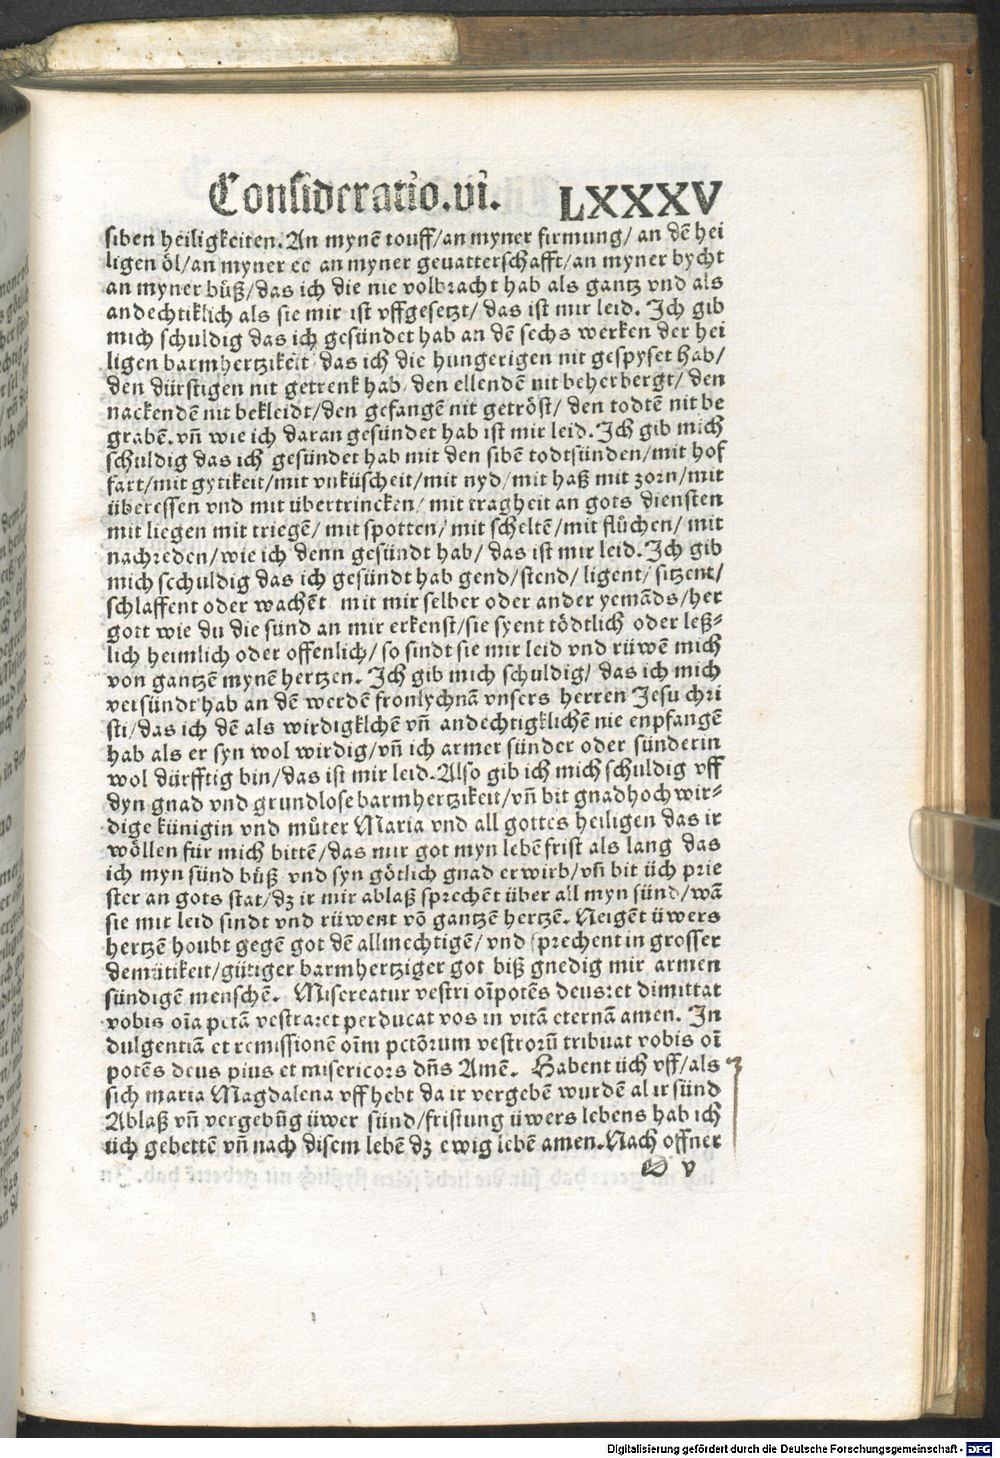 Consideratio.vi. LXXXV
siben heiligkeiten. An mynē touff/an myner firmung/ an dē hei
ligen öl/an myner ee an myner gevatterschafft/an myner bycht
an myner büß/das ich die nie volbracht hab als gantz vnd als
andechtiklich als sie mir ist vffgesetzt/ das ist mir leid. Ich gib
mich schuldig das ich gesündet hab an dē sechs werken der hei
ligen barmhertzikeit/das ich die hungerigen nit gespyset hab/
den dürstigen nit getrenk hab/den ellendē nit beherbergt/ den
nackendē nit bekleidt/den gefangē nit getröst/ den todtē nit be
grabē. vn̄ wie ich daran gesündet hab ist mir leid. Ich gib mich
schuldig das ich gesündet hab mit den sibē todtsünden/mit hof
fart/mit gytikeit/mit vnküscheit/mit nyd/mit haß mit zorn/mit
überessen vnd mit übertrincken/ mit tragheit an gots diensten
mit liegen mit triegē/ mit spotten/ mit scheltē/mit flüchen/ mit
nachreden/wie ich denn gesündt hab/ das ist mir leid. Ich gib
mich schuldig das ich gesündt hab gend/stend/ ligent/ sitzent/
schlaffent oder wachēt mit mir selber oder ander yemāds/her
gott wie du die sünd an mir erkenst/sie syent tödtlich oder leß⸗
lich heimlich oder offenlich/ so sindt sie mir leid vnd rüwē mich
von gantzē mynē hertzen. Ich gib mich schuldig/ das ich mich
versündt hab an dē werdē fronlychnā vnsers herren Jesu chri
sti/das ich dē als wirdigklchē vn̄ andechtigklichē nie enpfangē
hab als er syn wol wirdig/vn̄ ich armer sünder oder sünderin
wol dürfftig bin/das ist mir leid. Also gib ich mich schuldig vff
dyn gnad vnd grundlose barmhertzikeit/vn̄ bit gnad hochwir⸗
dige künigin vnd müter Maria vnd all gottes heiligen das ir
wöllen für mich bittē/das mir got myn lebē frist als lang das
ich myn sünd büß vnd syn götlich gnad erwirb/vn̄ bit üch prie
ster an gots stat/dz ir mir ablaß sprechēt über all myn sünd/wā
sie mir leid sindt vnd rüwent vō gantzē hertzē. Neigēt üwers
hertzē houbt gegē got dē allmechtigē/ vnd sprechent in grosser
demütikeit/gütiger barmhertziger got biß gnedig mir armen
sündigē menschē. Misereatur vestri oīpotēs deus: et dimittat
vobis oīa petā vestra: et perducat vos in vitā eternā amen. In
dulgentiā et remissionē oīm petōrum vestrorū tribuat vobis oī
potēs deus pius et misericors dn̄s Amē. Habent üch vff/als
sich maria Magdalena vff hebt da ir vergebē wurdē al ir sünd
Ablaß vn̄ vergebūg üwer sünd/fristung üwers lebens hab ich
üch gebettē vn̄ nach disem lebē dz ewig lebē amen. Nach offner
v
Digitalisierung gefördert durch die Deutsche Forschungsgemeinschaft - DFG